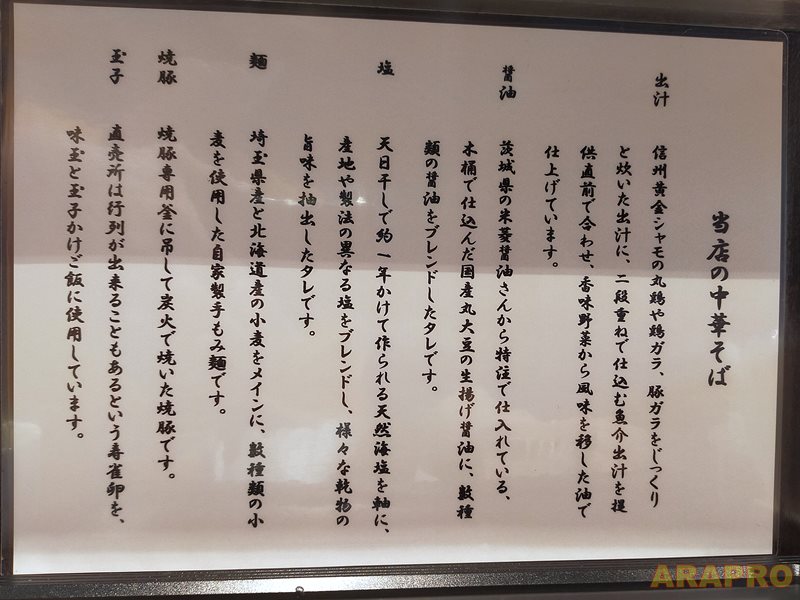 当店の中華そば
出汁
信州黄金シャモの丸鶏や鶏ガラ、豚ガラをじっくり
と炊いた出汁に、二段重ねで仕込む魚介出汁を提
供直前で合わせ、香味野菜から風味を移した油で
仕上げています。
醤油
茨城県の米菱醤油さんから特注で仕入れている、
木桶で仕込んだ国産丸大豆の生揚げ醤油に、数種
類の醤油をブレンドしたタレです。
塩
天日干しで約一年かけて作られる天然海塩を軸に、
産地や製法の異なる塩をブレンドし、様々な乾物の
旨味を抽出したタレです。
麺
埼玉県産と北海道産の小麦をメインに、数種類の小
麦を使用した自家製手もみ麺です。
焼豚
焼豚専用釜に吊して炭火で焼いた焼豚です。
玉子
直売所は行列が出来ることもあるという寿雀卵を、
味玉と玉子かけご飯に使用しています。
ARAPRO